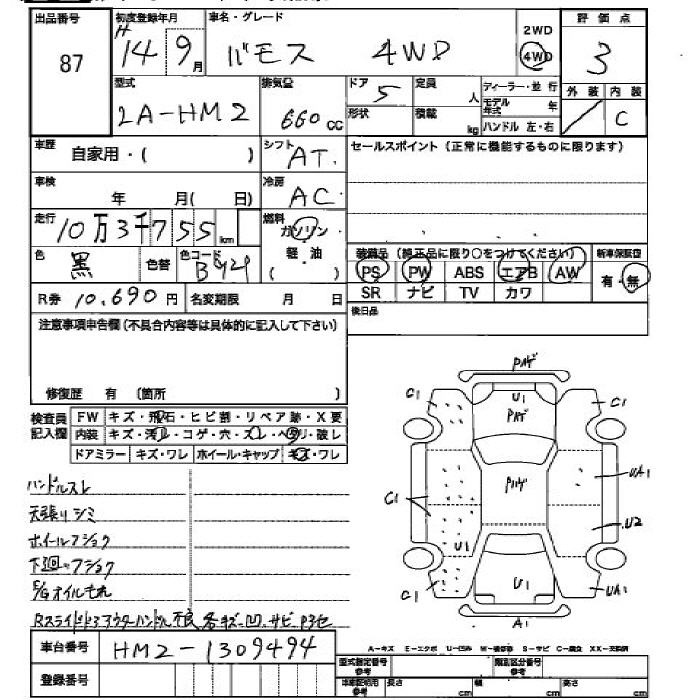 出品番号 初度登録年月 車名・グレード 評価点
87 H 14 9月 バモス 4WD 2WD 4WD 3
型式 排気量 ドア 定員 ディーラー・並行 外装 内装
LA-HM2 660cc 5 人 モデル年式 C
形状 積載 kg ハンドル 左・右
車歴 自家用・( ) シフト AT セールスポイント(正常に機能するものに限ります)
車検 年 月( 日) 冷房 AC
走行 10万3千755km 燃料 ガソリン
軽油
( )
色 黒 色替 色コード
装備品(純正品に限り○をつけてください) 新車保証書
PS PW ABS エアB AW 有・無
SR ナビ TV カワ
R券 10,690円 名変期限 月 日
後日品
注意事項申告欄(不具合内容等は具体的に記入して下さい)
修復歴 有 〔箇所 〕
検査員記入欄
FW キズ・飛石・ヒビ割・リペア跡・X要
内装 キズ・汚レ・コゲ・穴・スレ・ヘタリ・破レ
ドアミラー キズ・ワレ ホイール・キャップ キズ・ワレ
ハンドルスレ
天張りシミ
ホイールフショク
下廻りフショク
E/Gオイルもれ
Rスライドドアアウターハンドル不良 各キズ・凹、サビ
Pハゲ
C1 U1 C1
Pハゲ
C1 Pハゲ UA1
U2
U1
C1 U1 UA1
A1
A-キズ E-エクボ U-凹み W-補修跡 S-サビ C-腐食 XX-交換済
車台番号 HM2-1309494
型式指定番号 参考 類別区分番号 参考
登録番号
車庫証明用 参考 長さ cm 幅 cm 高さ cm